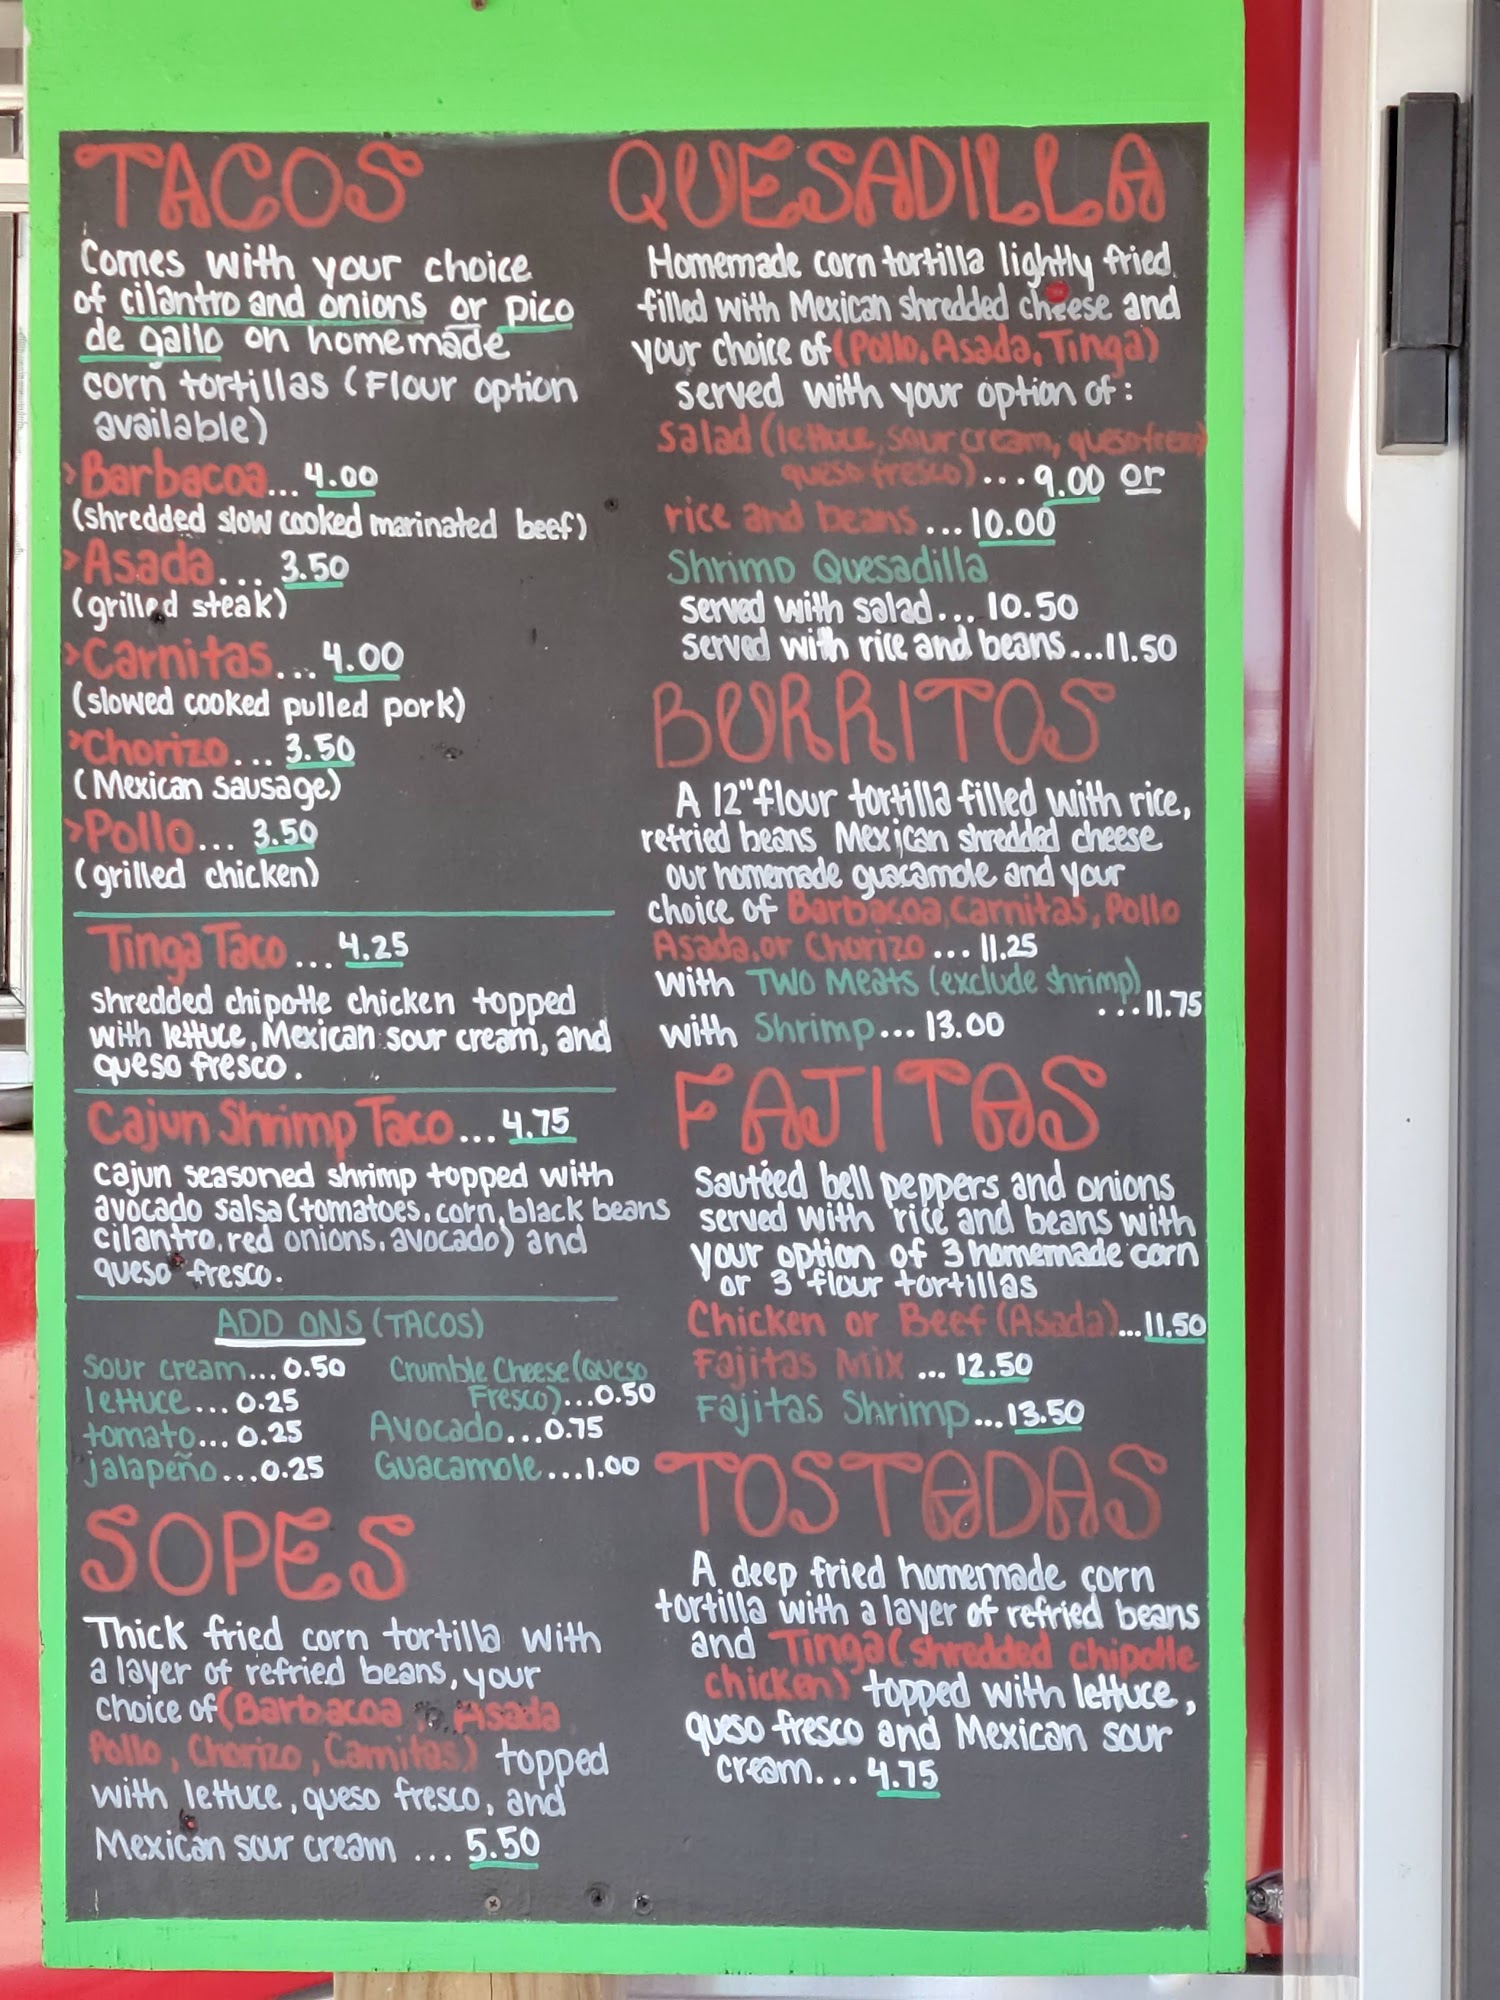 TACOS
Comes with your choice
of cilantro and onions or pico
de gallo on homemade
corn tortillas (Flour option
available)
>Barbacoa... 4.00
(shredded slow cooked marinated beef)
>Asada... 3.50
(grilled steak)
>Carnitas... 4.00
(slowed cooked pulled pork)
>Chorizo... 3.50
(Mexican sausage)
>Pollo... 3.50
(grilled chicken)
Tinga Taco... 4.25
shredded chipotle chicken topped
with lettuce, Mexican sour cream, and
queso fresco.
Cajun Shrimp Taco... 4.75
cajun seasoned shrimp topped with
avocado salsa (tomatoes, corn, black beans
cilantro, red onions, avocado) and
queso fresco.
ADD ONS (TACOS)
sour cream... 0.50
lettuce... 0.25
tomato... 0.25
jalapeño...0.25
Crumble Cheese (Queso
Fresco)...0.50
Avocado...0.75
Guacamole...1.00
SOPES
Thick fried corn tortilla with
a layer of refried beans, your
choice of (Barbacoa, Asada
Pollo, Chorizo, Carnitas) topped
with lettuce, queso fresco, and
Mexican sour cream ... 5.50
QUESADILLA
Homemade corn tortilla lightly fried.
filled with Mexican shredded cheese and
your choice of (Pollo, Asada, Tinga)
served with your option of:
salad (lettuce, sour cream, queso fresco
queso fresco) ... 9.00 or
rice and beans... 10.00
Shrimp Quesadilla
served with salad... 10.50
served with rice and beans...11.50
BURRITOS
A 12" flour tortilla filled with rice,
refried beans Mexican shredded cheese
our homemade guacamole and your
choice of Barbacoa, Carnitas, Pollo
Asada, or Chorizo ... 11.25
with TWO Meats (exclude shrimp)
...11.75
with Shrimp... 13.00
FAJITAS
Sautéed bell peppers and onions
served with rice and beans with
your option of 3 homemade corn
or 3 flour tortillas
Chicken or Beef (Asada)...11.50
Fajitas Mix ... 12.50
Fajitas Shrimp...13.50
TOSTADAS
A deep fried homemade corn
tortilla with a layer of refried beans
and Tinga (shredded chipotle
chicken) topped with lettuce,
queso fresco and Mexican sour
cream... 4.75